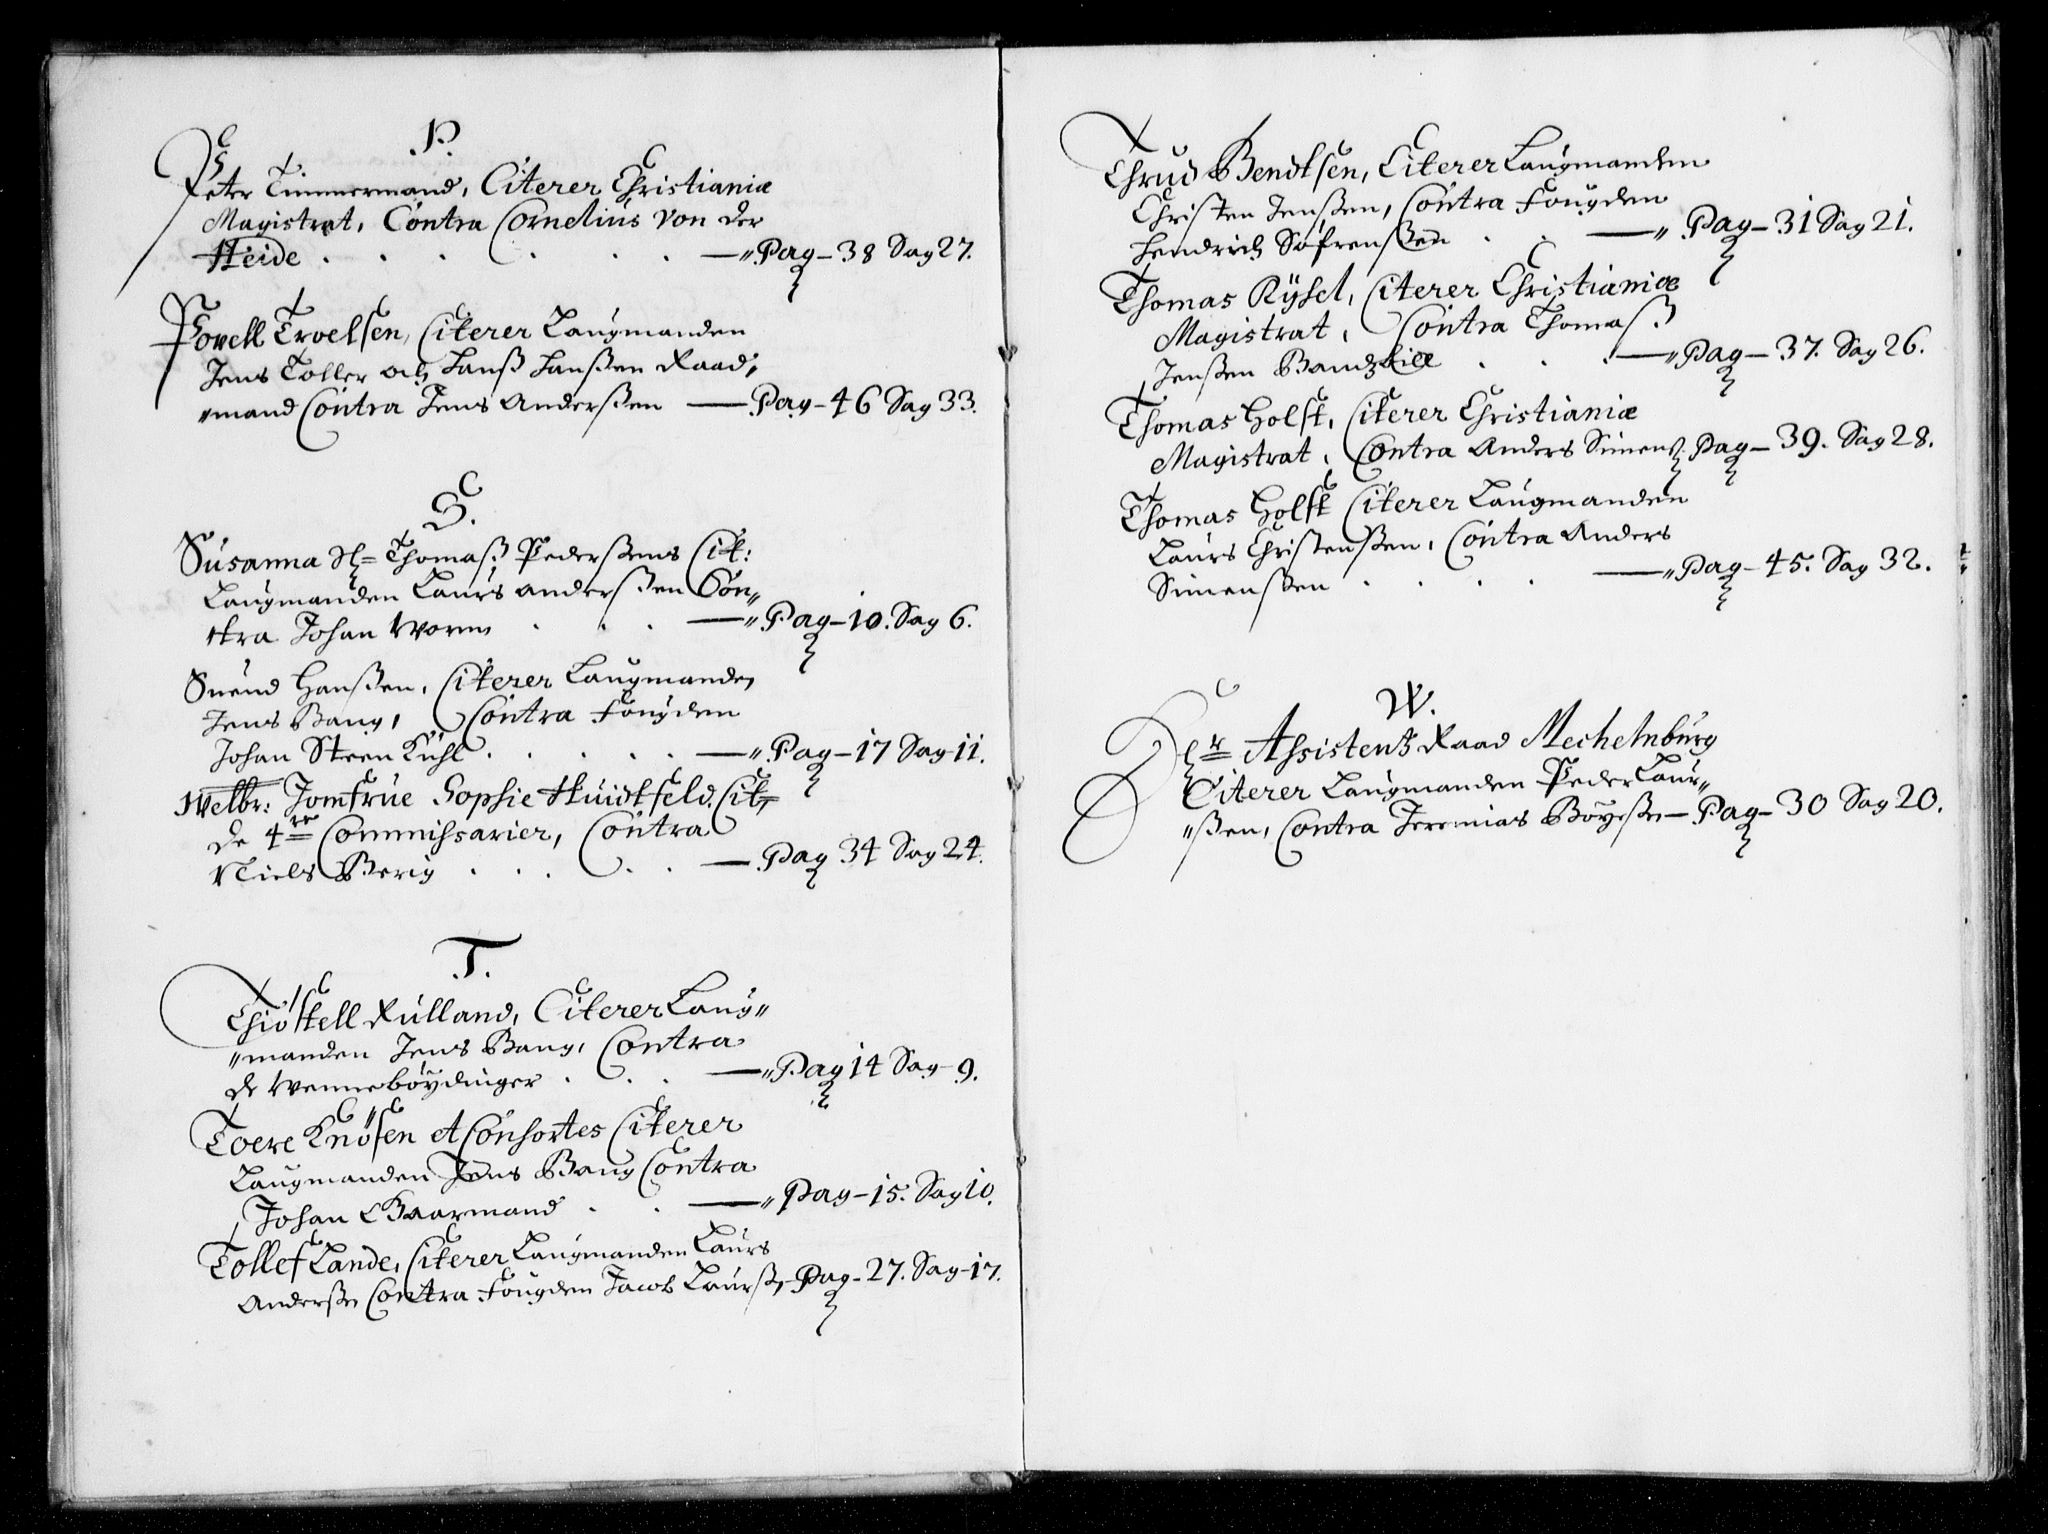 P.
Peter Timmermand, Citerer Christianiæ
Magistrat, Contra Cornelius von der
Heide . . . . . . . —„ Pag – 38 Sag 27.
Povell Troelsen, Citerer Laugmanden
Jens Toller och Hanß Hanßen Raad„
„mand Contra Jens Anderßen — Pag – 46 Sag 33.
S.
Susanna Sl= Thomaß Pederßens Cit:
Laugmanden Laurs Anderßen Con„
tra Johan Worm . . . —„ Pag – 10. Sag 6.
Suend Hanßen, Citerer Laugmanden
Jens Bang, Contra Fougden
Johan Steen Kuhl . . . . . —„ Pag – 17 Sag 11.
Welbr: Jomfrue Sophie Huidtfeld. Cit
de 4re Commissarier, Contra
Niels Berig . . . . . — Pag 34 Sag 24.
T.
Thiostell Rulland, Citerer Laug„
„manden Jens Bang, Contra
de Wenneböydinger . . . —„ Pag 14 Sag 9.
Toere Knösen et Consortes Citerer
Laugmanden Jens Bang Contra
Johan Baarmand . . —„ Pag – 15. Sag 10.
Tollef Lande, Citerer Laugmanden Laurs
Anderße Contra Fougden Jacob Laurß, Pag – 27. Sag 17.
Thrud Bendtsen, Citerer Laugmanden
Christen Jenßen, Contra Fougden
Hendrich Söfrenßen . . —„ Pag – 31 Sag 21.
Thomas Rysel, Citerer Christianiæ
Magistrat, Contra Thomaß
Jenßen . . . —„ Pag – 37. Sag 26.
Thomas Holst, Citerer Christianiæ
Magistrat, Contra Anders Simenß. Pag – 39. Sag 28.
Thomas Holst Citerer Laugmanden
Laurs Christenßen, Contra Anders
Simenßen . . . . —„ Pag – 45. Sag 32.
W.
Hr Assistentz Raad Mechelnburg
Citerer Laugmanden Peder Laur„
„ßen, Contra Jeremias Böyeße – Pag – 30 Sag 20.